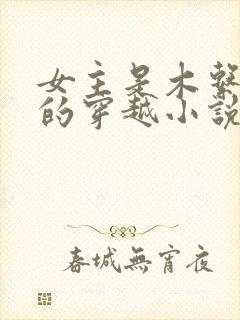 女主是木系
的穿越小說
春城無宵夜